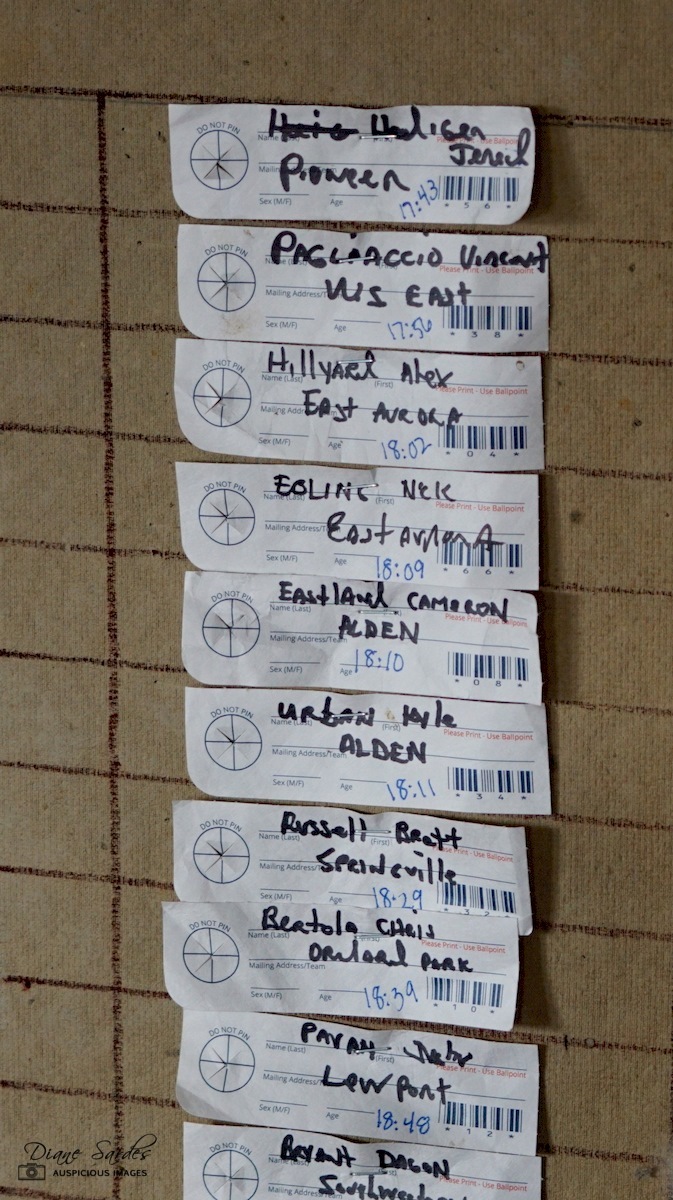 DO NOT PIN
Name
Jerod
Please Print - Use Ballpoint
Pioneer
Sex (M/F) Age
17:43
* 5 6 *
DO NOT PIN
PAGLIACCIO Vincent
Please Print - Use Ballpoint
Mailing Address/
EAST
Sex (M/F) Age
17:56
* 3 8 *
DO NOT PIN
Hillyard Alex
Name (Last) (First)
Please Print - Use Ballpoint
Mailing Addre
EAST AURORA
Sex (M/F) Age
18:02
* 0 4 *
DO NOT PIN
EBLING Nick
Name (Last) (First)
Please Print - Use Ballpoint
Mailing Address/T
East Aurora
Sex (M/F) Age
18:09
* 6 6 *
DO NOT PIN
Eastland CAMERON
Name (Last)
Please Print - Use Ballpoint
ALDEN
Mailing Address/Team
Sex (M/F) Age
18:10
* 0 8 *
DO NOT PIN
URBAN Kyle
Name (Last) (First)
Please Print - Use Ballpoint
ALDEN
Mailing Address/Team
Sex (M/F) Age
18:11
* 3 4 *
DO NOT PIN
Russell Brett
Name (Last) (First)
Please Print - Use Ballpoint
Springville
Mailing Address/T
Sex (M/F) Age
18:29
* 3 2 *
DO NOT PIN
Bertola Chris
Name (Last) (First)
Please Print - Use Ballpoint
Orchard Park
Mailing Address/Team
Sex (M/F) Age
18:39
* 1 0 *
DO NOT PIN
Name (Last) (First)
Please Print - Use Ballpoint
Lewport
Mailing Address/
Sex (M/F) Age
18:48
* 1 2 *
DO NOT PIN
Bryant
Name (Last) (First)
Please Print - Use Ballpoint
Diane Sardes
AUSPICIOUS IMAGES